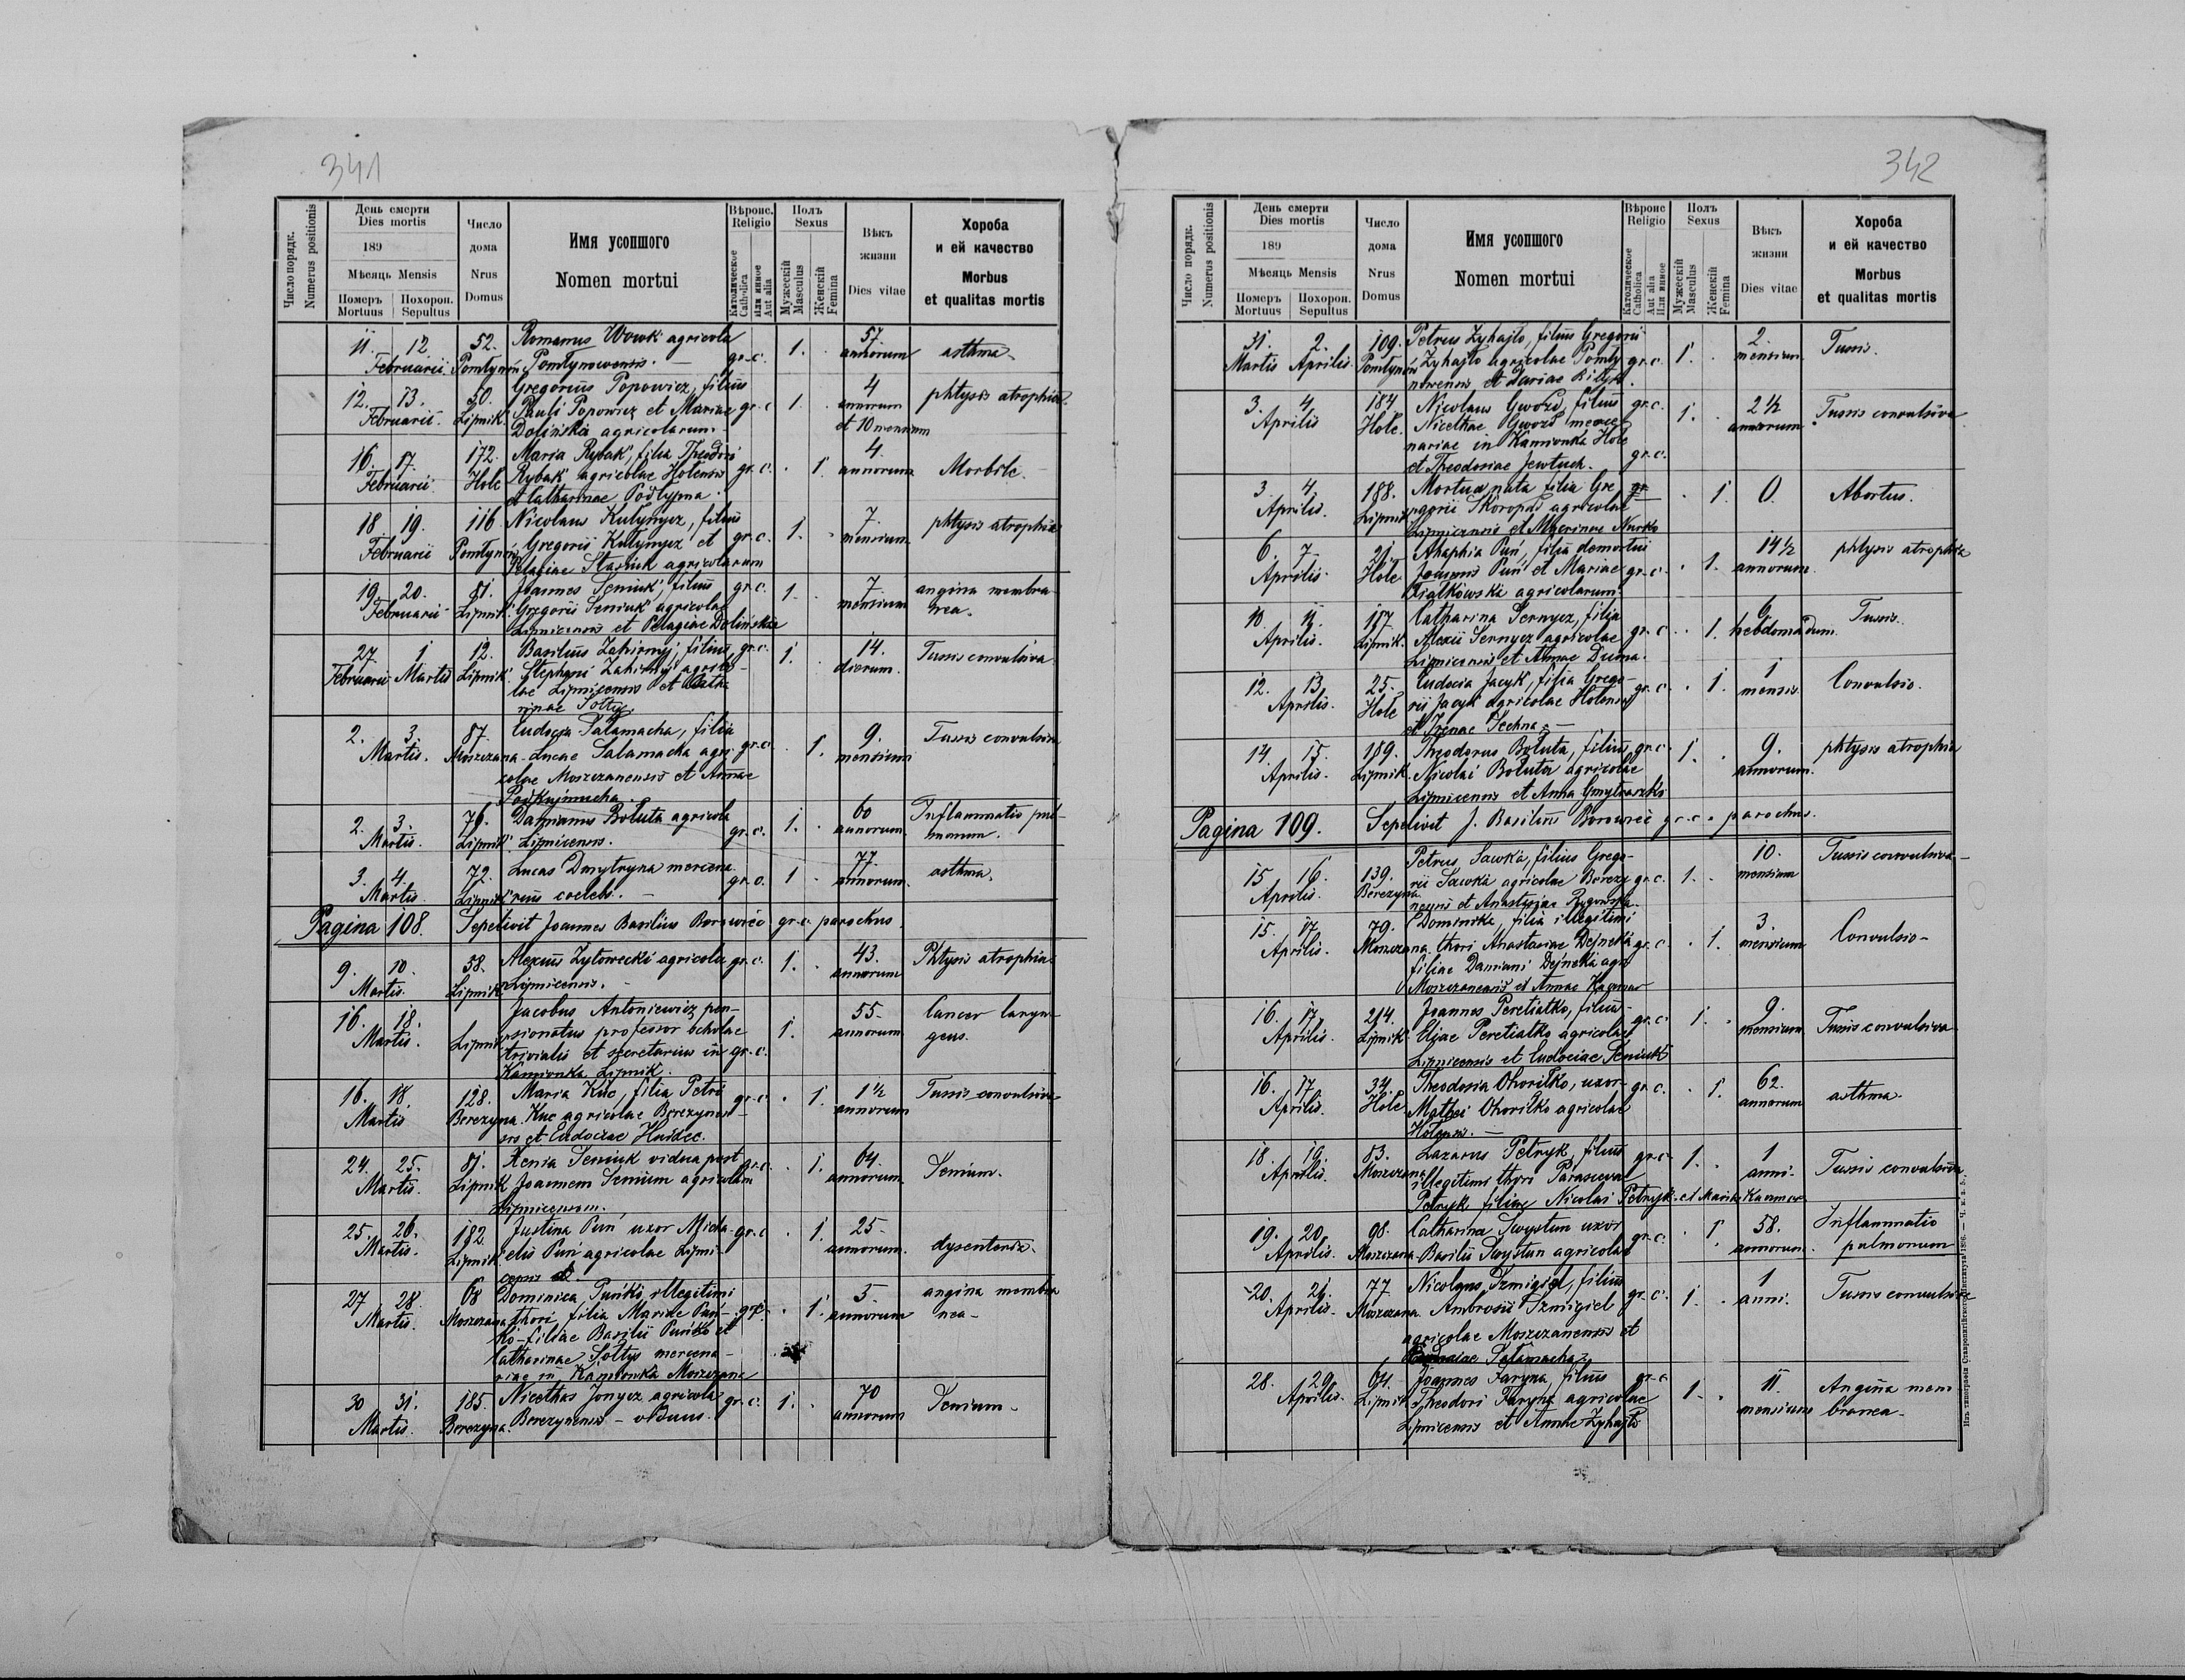 341
Число порядк.
Numerus positionis
День смерти
Dies mortis
189
Мѣсяць Mensis
Померъ Mortuus
Похорон. Sepultus
Число дома
Nrus Domus
Имя усопшого
Nomen mortui
Вѣроис.
Religio
Католическое
Catholica
или иное
Aut alia
Полъ
Sexus
Мужескій
Masculus
Женскій
Femina
Вѣкъ жизни
Dies vitae
Хороба
и ей качество
Morbus
et qualitas mortis
11. 12 52. Romanus Wowk agricola gr. c. 1. 57. asthma.
Februarii. Pomłynów Pomłynowensis. annorum
12. 13. 50. Gregorius Popowicz, filius 4
Februarii. Lipnik. Pauli Popowicz et Mariae gr. c 1. annorum phtysis atrophia.
Dolińska agricolarum. et 10 mensium
16. 17. 172. Maria Rybak, filia Theodori 4.
Februarii. Hole Rybak agricolae Holensis gr. c. 1. annorum Morbile.
et Catharinae Podłypna.
18 19. 116. Nicolaus Kułynycz, filius 7.
Februarii Pomłynów Gregorii Kułynycz et gr. c. 1. mensium phtysis atrophia
Pelagiae Stasiuk agricolarum
19. 20. 81. Joannes Seniuk, filius gr. c. 1. 7. angina membra
Februarii Lipnik. Gregorii Seniuk agricolae mensium nea.
Lipnicensis et Pelagiae Dolińska
27. 1 12. Basilius Zahirnyj, filius gr. c. 1. 14. Tussis convulsiva
Februarii Martii Lipnik. Stephani Zahirnyj agrico-
lae Lipnicensis et Catha dierum.
rinae Sołtys.
2. 3. 87. Eudocia Sałamacha, filia 9. Tussis convulsiva
Martii. Moszczana. Lucae Sałamacha agri- gr. c. 1. mensium
colae Moszczanensis et Annae
Podkujmucha.
2. 3. 76. Damianus Bołuta agricola 60 Inflammatio pul-
Martii. Lipnik Lipnicensis. gr. c. 1. annorum. monum.
3. 4. 72. Lucas Dmytryna mercena 77. asthma.
Martii. Lipnik rius coelebs. gr. c. 1 annorum.
Pagina 108. Sepelivit Joannes Basilius Borowiec gr. c. parochus.
9. 10. 58. Alexius Zytowecki agricola gr. c. 1. 43. Phtysis atrophia
Martii. Lipnik Lipnicensis. annorum
16. 18. Jacobus Antoniewicz, pen- 55. Cancer laryn
Martii. Lipnik sionatus professor scholae 1. annorum geus.
trivialis et secretarius in gr. c.
Kamionka Lipnik.
16. 18 128. Maria Kuc, filia Petri gr. c. 1. 1½ Tussis convulsiva
Martii Berezyna. Kuc agricolae Berezynen- annorum
sis et Eudociae Hnidec.
24. 25. 81. Xenia Seniuk vidua post gr. c. 1. 64. Senium.
Martii. Lipnik Joannem Senium agricolam annorum
Lipnicensem.
25. 26. 182. Justina Puń uxor Micha- gr. c 1. 25
Martii. Lipnik elis Puń agricolae Lipni- annorum. dysenteria.
censis
27 28. 68 Dominica Puńko, illegitimi 5. angina membra
Martii. Moszczana thori, filia Mariae Puń- gr. c. 1. annorum nea
ko-filiae Basilii Puńko et
Catharinae Sołtys mercena-
riae in Kamionka Moszczana
30 31. 185. Nicethas Jonycz agricola gr. c. 1. 70 Senium.
Martii. Berezyna. Berezynensis - viduus. annorum
342
Число порядк.
Numerus positionis
День смерти
Dies mortis
189
Мѣсяць Mensis
Померъ Mortuus
Похорон. Sepultus
Число дома
Nrus Domus
Имя усопшого
Nomen mortui
Вѣроис
Religio
Католическое
Catholica
Aut alia
Или иное
Полъ
Sexus
Мужескій
Masculus
Женскій
Femina
Вѣкъ жизни
Dies vitae
Хороба
и ей качество
Morbus
et qualitas mortis
31. 2. 109. Petrus Zyhajło, filius Gregorii 2. Tussis.
Martii Aprilis. Pomłynów Zyhajło agricolae Pomły gr. c. 1. mensium
nowensis et Dariae Biłyk.
3. 4. 184 Nicolaus Gwozd, filius gr. c. 2½ Tussis convulsiva
Aprilis Hole. Nicethae Gwozd merce 1. annorum
nariae in Kamionka Hole
et Theodosiae Jewtuch. gr. c.
3. 4. 188. Mortua nata filia Gre gr 1. 0. Abortus.
Aprilis. Lipnik gorii Skoropad agricolae
Lipnicensis et Mariae Nurko
6. 7. 21. Ahaphia Puń, filia demortui 14½ phtysis atrophia
Aprilis. Hole Joannis Puń et Mariae gr. c. 1. annorum.
Fiałkowska agricolarum.
10. 11. 157. Catharina Sernycz, filia 6 Tussis.
Aprilis. Lipnik. Alexii Sernycz agricolae gr. c. 1. hebdomadum.
Lipnicensis et Annae Duma.
12. 13. 25. Eudocia Jacyk, filia Grego- 1 Convulsio.
Aprilis. Hole rii Jacyk agricolae Holensis gr. c. 1. mensis.
et Irenae Techna.
14. 15. 189. Theodorus Bołuta, filius gr. c. 1. 9. phtysis atrophia
Aprilis. Lipnik. Nicolai Bołuta agricolae annorum.
Lipnicensis et Anna Gmytraszko
Pagina 109. Sepelivit J. Basilius Borowiec gr. c. parochus.
15 16. 139. Petrus Sawka, filius Grego- 10. Tussis convulsiva
Aprilis. Berezyna rii Sawka agricolae Berezy gr. c. 1. mensium
nensis et Anastasiae
15. 17. 79. Dominika, filia illegitimi 3. Convulsio
Aprilis. Moszczana. thori Anastasiae Dejneka gr. c. 1. mensium
filiae Damiani Dejneka agri
Moszczanensis et Annae Kaczmar
16. 17. 214. Joannes Peretiatko, filius 9. Tussis convulsiva
Aprilis. Lipnik Eliae Peretiatko agricolae gr. c. 1. mensium
Lipnicensis et Eudociae Seniuk
16. 17 34. Theodosia Ohoriłko, uxor gr. c. 1. 62. asthma.
Aprilis. Hole Mathei Ohoriłko agricolae annorum
Holensis.
18. 19. 83. Lazarus Petryk, filius gr. c. 1. 1 Tussis convulsiva
Aprilis. Moszczana illegitimi thori Parasceva anni.
Petryk filiae Nicolai Petryk et Maria Kaczmar
19. 20. 98. Catharina Swystun uxor 58. Inflammatio
Aprilis. Moszczana. Basilii Swystun agricolae gr. c. 1. annorum. pulmonum
20. 21. 77 Nicolaus Izmigiel, filius 1 Tussis convulsiva
Aprilis. Moszczana. Ambrosii Izmigiel gr. c. 1. anni.
agricolae Moszczanensis et
Sałamacha.
28. 29. 64. Joannes Faryna, filius gr. c 11. Angina mem
Aprilis. Lipnik Theodori Faryna agricolae 1. mensium branea.
Lipnicensis et Annae Zyhajło
Изъ типографіи Ставропигійского Института